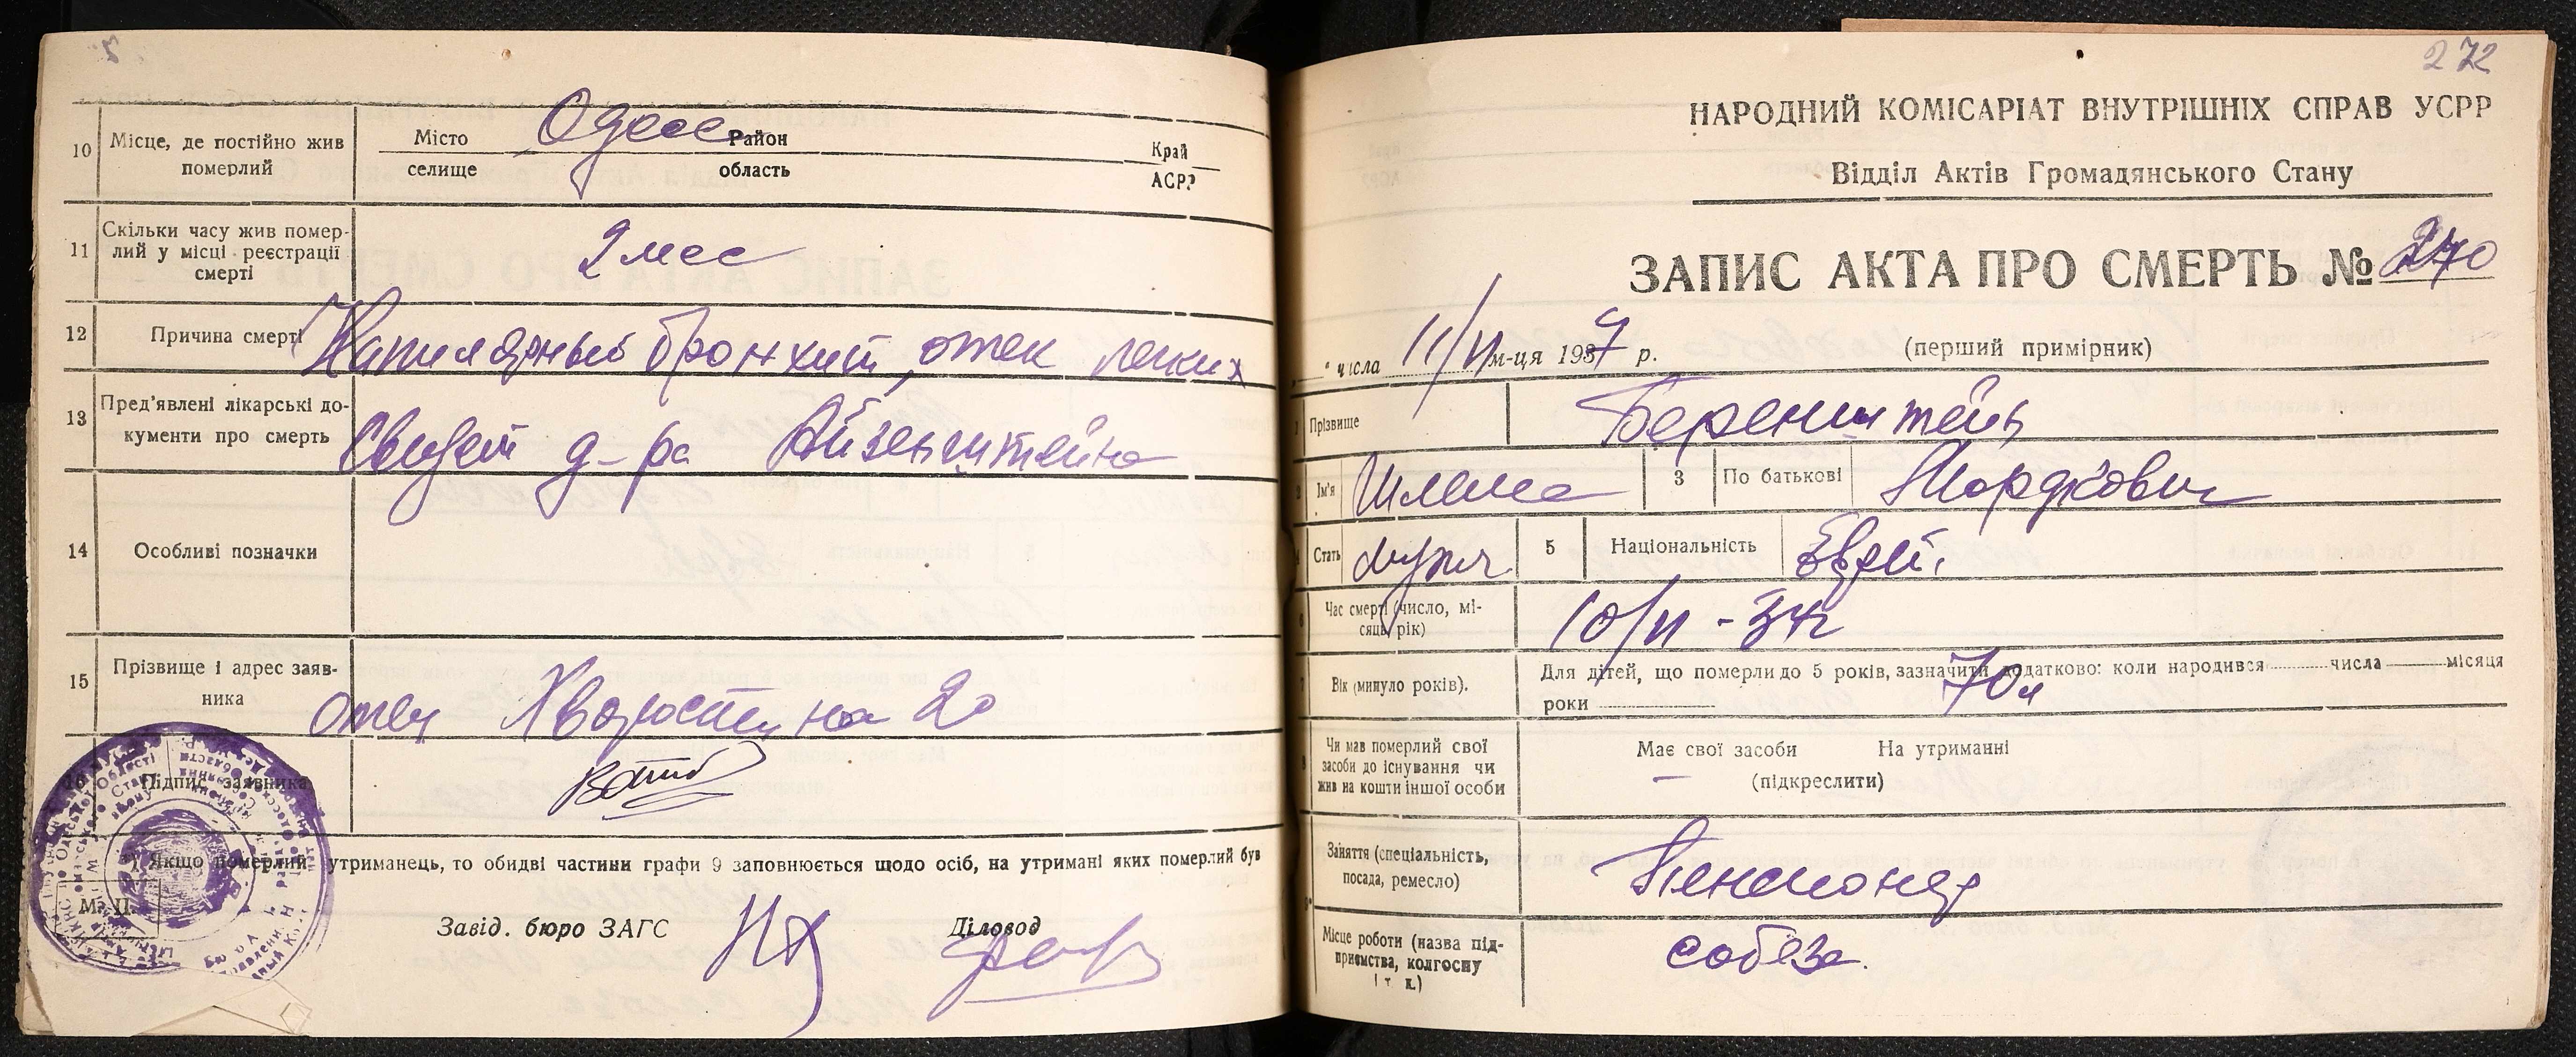 10 Місце, де постійно жив померлий
Місто Одесса Район Край
селище область АСРР
11 Скільки часу жив помер-
лий у місці реєстрації
смерті
2 мес
12 Причина смерті Капилярный бронхит, отек легких
13 Пред'явлені лікарські до-
кументи про смерть
Свидет д-ра Айзенштейна
14 Особливі позначки
15 Прізвище і адрес заяв-
ника
отец Хворостина 20
16 Підпис заявника
*) Якщо померлий утриманець, то обидві частини графи 9 заповнюється щодо осіб, на утримані яких померлий був
М. П.
Завід. бюро ЗАГС Діловод
272
НАРОДНИЙ КОМІСАРІАТ ВНУТРІШНІХ СПРАВ УСРР
Відділ Актів Громадянського Стану
ЗАПИС АКТА ПРО СМЕРТЬ № 270
" числа 11/II м-ця 1937 р. (перший примірник)
1 Прізвище Беренштейн
2 Ім'я Шлема 3 По батькові Мордкович
4 Стать муж 5 Національність Еврей.
6 Час смерті (число, мі-
сяць, рік)
10/II - 37г
7 Вік (минуло років).
Для дітей, що померли до 5 років, зазначити додатково: коли народився числа місяця
роки
70л
8 Чи мав померлий свої
засоби до існування чи
жив на кошти іншої особи
Має свої засоби На утриманні
(підкреслити)
Заняття (спеціальність,
посада, ремесло)
Пенсионер
9
Місце роботи (назва під-
приємства, колгоспу
і т. п.)
собеза.